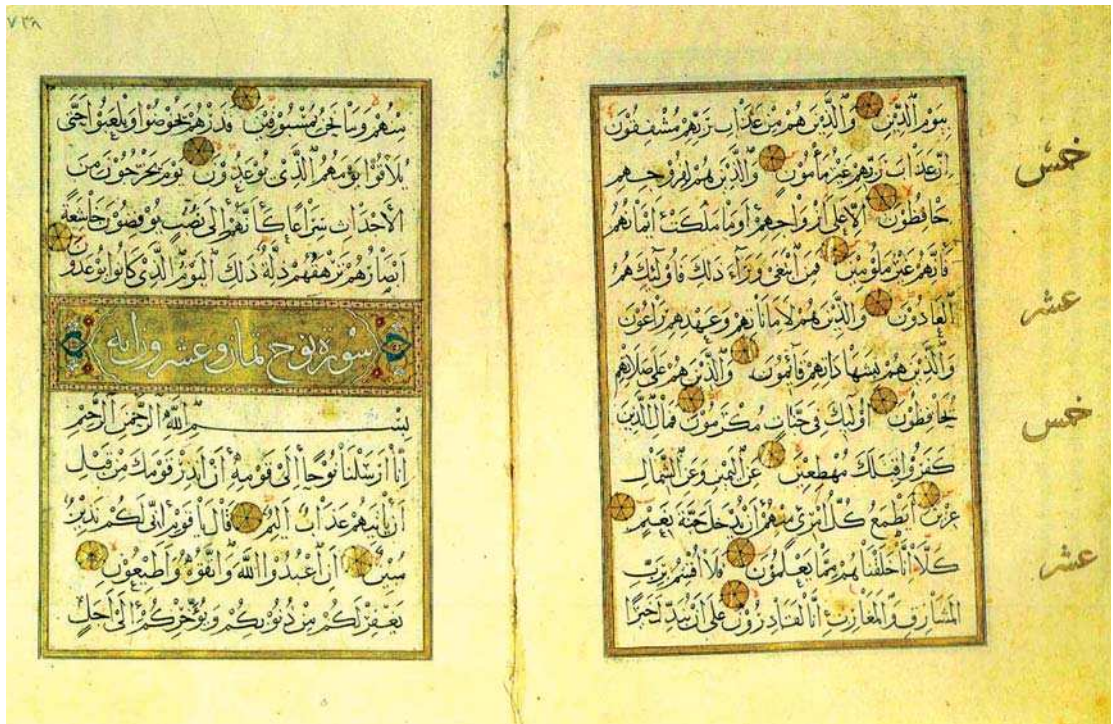 بِيَوْمِ الدِّينِ وَالَّذِينَ هُمْ مِنْ عَذَابِ رَبِّهِمْ مُشْفِقُونَ
إِنَّ عَذَابَ رَبِّهِمْ غَيْرُ مَأْمُونٍ وَالَّذِينَ هُمْ لِفُرُوجِهِمْ
حَافِظُونَ إِلَّا عَلَى أَزْوَاجِهِمْ أَوْ مَا مَلَكَتْ أَيْمَانُهُمْ
فَإِنَّهُمْ غَيْرُ مَلُومِينَ فَمَنِ ابْتَغَى وَرَاءَ ذَلِكَ فَأُولَئِكَ هُمُ
الْعَادُونَ وَالَّذِينَ هُمْ لِأَمَانَاتِهِمْ وَعَهْدِهِمْ رَاعُونَ
وَالَّذِينَ هُمْ بِشَهَادَاتِهِمْ قَائِمُونَ وَالَّذِينَ هُمْ عَلَى صَلَاتِهِمْ
يُحَافِظُونَ أُولَئِكَ فِي جَنَّاتٍ مُكْرَمُونَ فَمَالِ الَّذِينَ
كَفَرُوا قِبَلَكَ مُهْطِعِينَ عَنِ الْيَمِينِ وَعَنِ الشِّمَالِ
عِزِينَ أَيَطْمَعُ كُلُّ امْرِئٍ مِنْهُمْ أَنْ يُدْخَلَ جَنَّةَ نَعِيمٍ
كَلَّا إِنَّا خَلَقْنَاهُمْ مِمَّا يَعْلَمُونَ فَلَا أُقْسِمُ بِرَبِّ
الْمَشَارِقِ وَالْمَغَارِبِ إِنَّا لَقَادِرُونَ عَلَى أَنْ نُبَدِّلَ خَيْرًا
خمس
عشر
خمس
عشر
٧٣٨
مِنْهُمْ وَمَا نَحْنُ بِمَسْبُوقِينَ فَذَرْهُمْ يَخُوضُوا وَيَلْعَبُوا حَتَّى
يُلَاقُوا يَوْمَهُمُ الَّذِي يُوعَدُونَ يَوْمَ يَخْرُجُونَ مِنَ
الْأَجْدَاثِ سِرَاعًا كَأَنَّهُمْ إِلَى نُصُبٍ يُوفِضُونَ خَاشِعَةً
أَبْصَارُهُمْ تَرْهَقُهُمْ ذِلَّةٌ ذَلِكَ الْيَوْمُ الَّذِي كَانُوا يُوعَدُونَ
سورة نوح ثمان وعشرون آية
بِسْمِ اللَّهِ الرَّحْمَنِ الرَّحِيمِ
إِنَّا أَرْسَلْنَا نُوحًا إِلَى قَوْمِهِ أَنْ أَنْذِرْ قَوْمَكَ مِنْ قَبْلِ
أَنْ يَأْتِيَهُمْ عَذَابٌ أَلِيمٌ قَالَ يَا قَوْمِ إِنِّي لَكُمْ نَذِيرٌ
مُبِينٌ أَنِ اعْبُدُوا اللَّهَ وَاتَّقُوهُ وَأَطِيعُونِ
يَغْفِرْ لَكُمْ مِنْ ذُنُوبِكُمْ وَيُؤَخِّرْكُمْ إِلَى أَجَلٍ